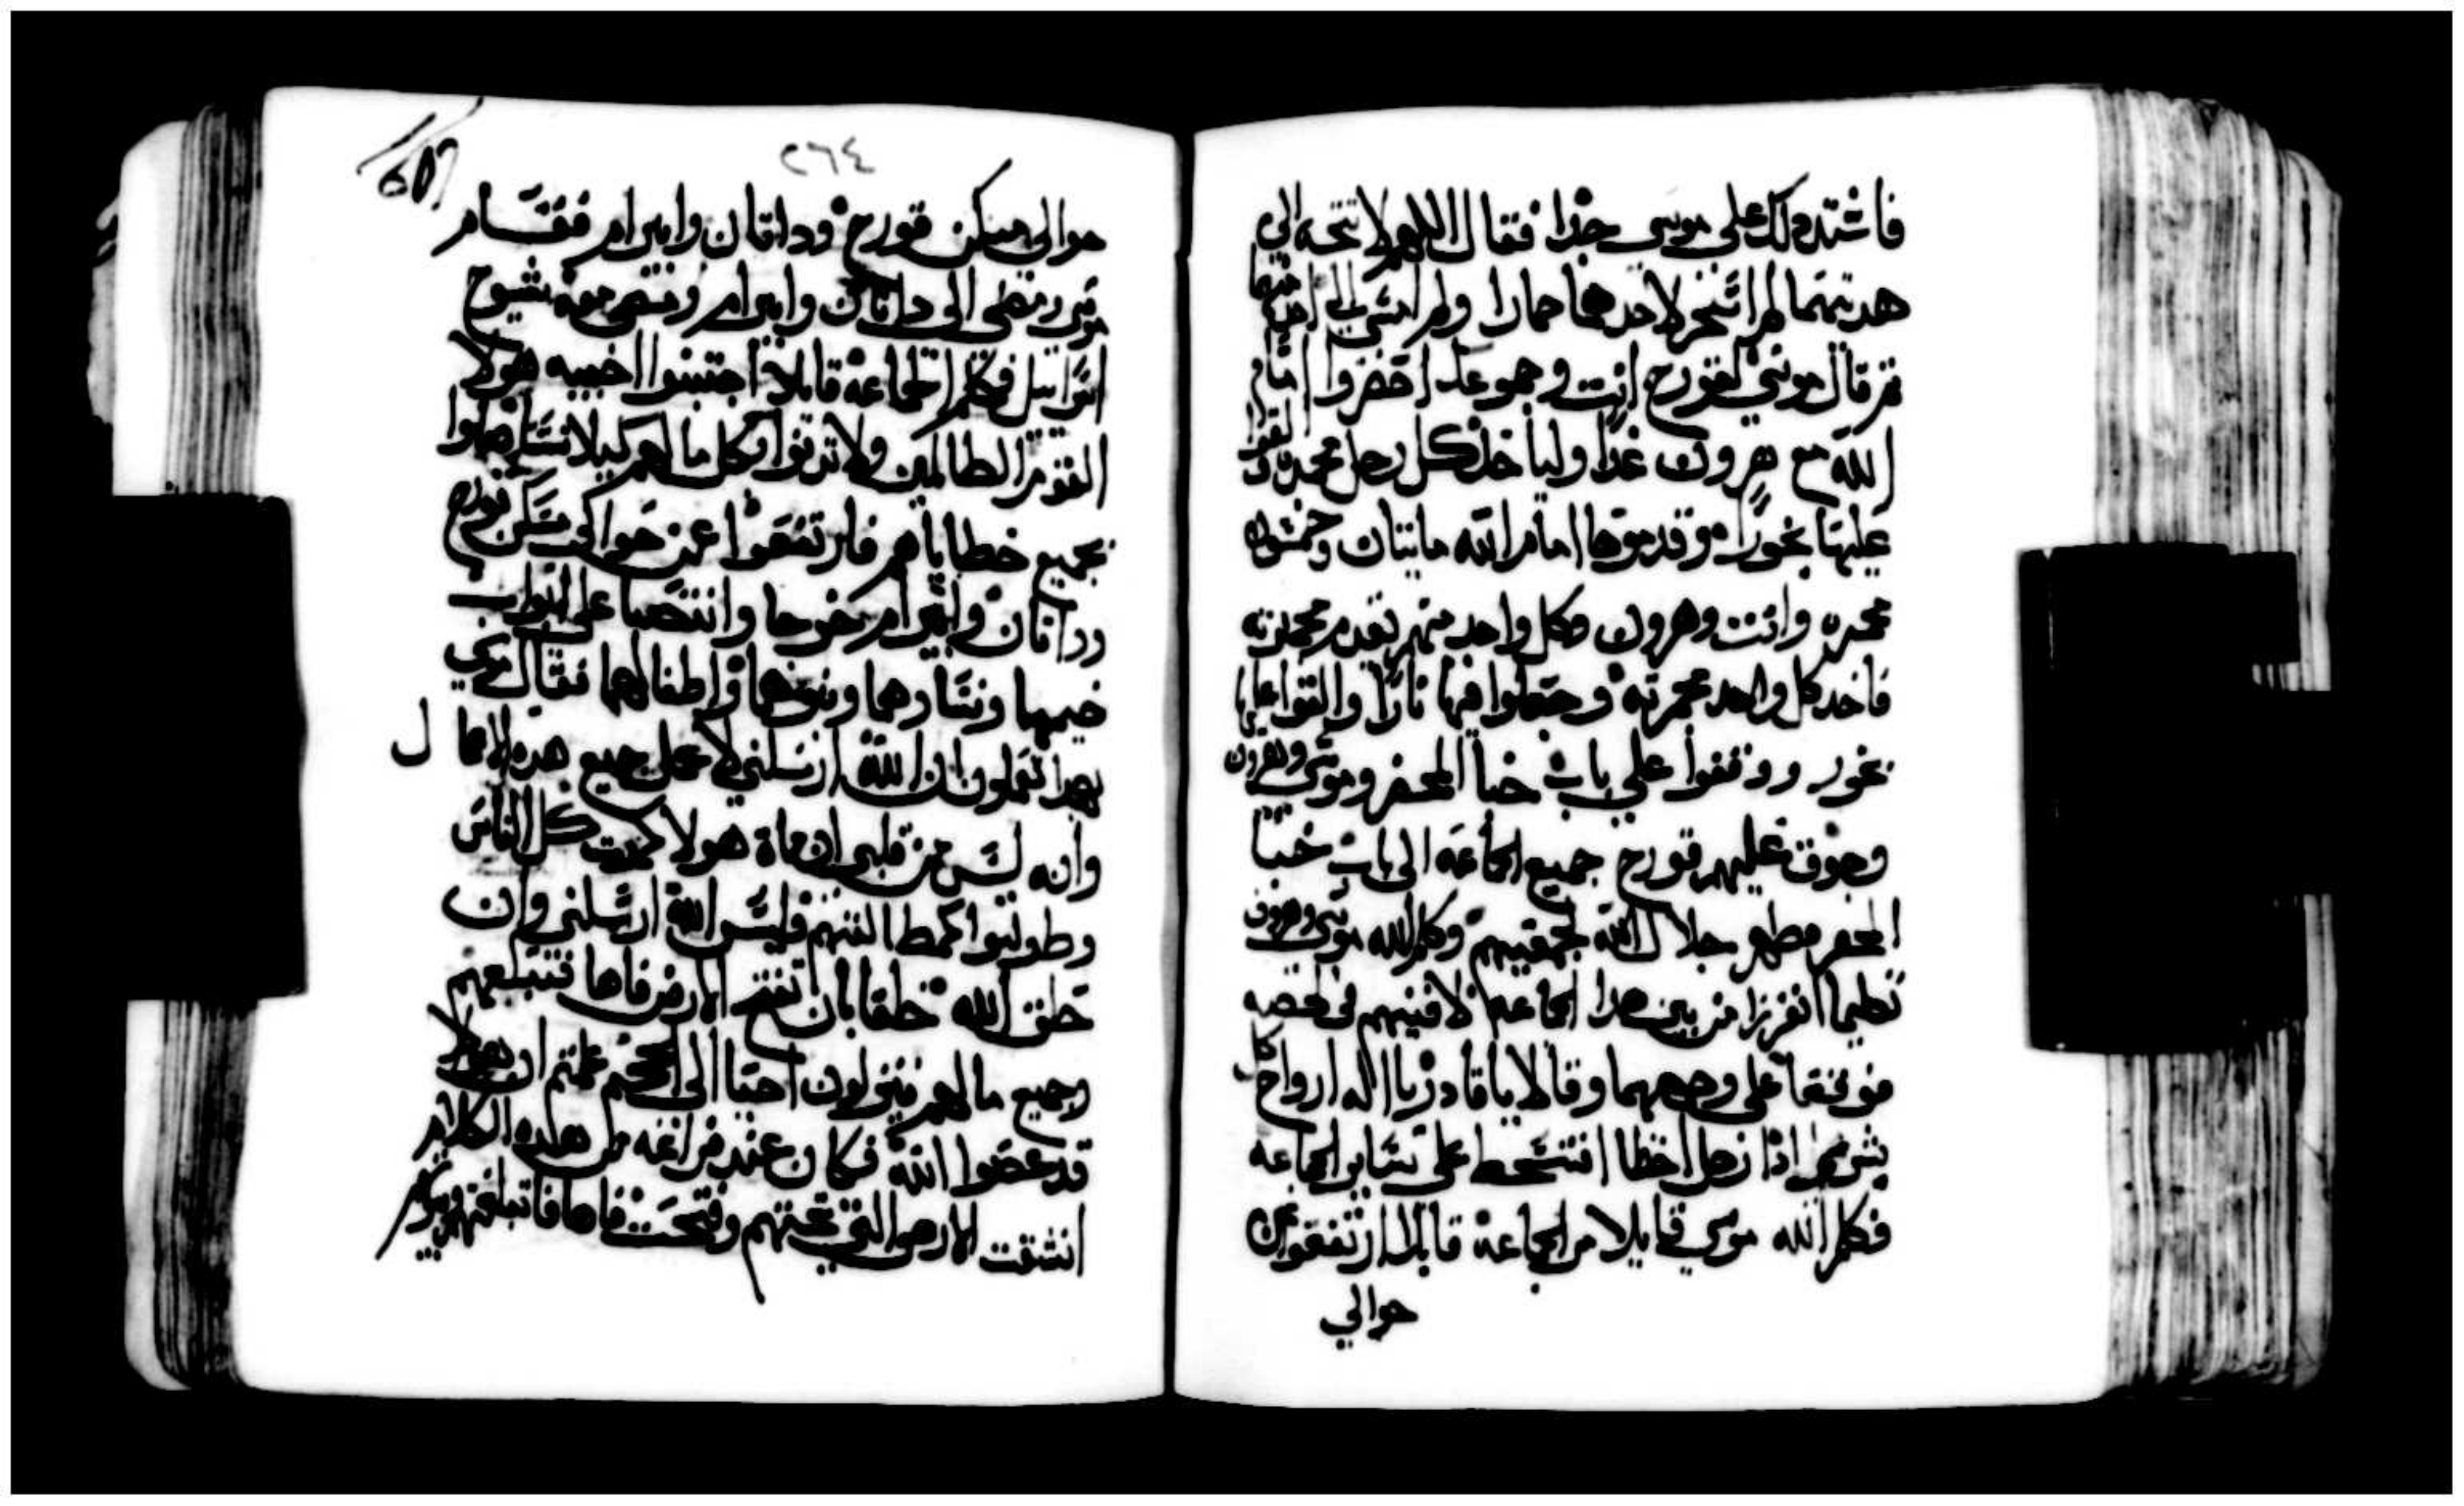 فاشتد ذلك علي موسي جدا فقال اللهم لا تتجه الي
هديتهما لم اتسخر لاحدهما حمارا ولم اسي الي احد منهما
ثم قال موسي لقورح انت وجموعك احضروا امام
الله مع هرون غدا ولياخذ كل رجل مجمرة والقوا
عليها بخورا وقدموها امام الله مايتان وخمسون
مجمره وانت وهرون فكل واحد منهم يقدم مجمرته
فاخد كل واحد مجمرته وجعلوا فيها نارا والقوا عليها
بخور ووقفوا علي باب خبا المحضر وموسي وهرون
وجوق عليهم قورح جميع الجماعه الي باب خبا
المحضر فظهر جلال الله لجميعهم وكلم الله موسي وهرون
تكليما انفرزا من بين هدا الجماعه لافنيهم في لحضه
فوقعا علي وجههما وقالا يا قادر يا اله ارواح كل
بشري اذا رجل اخطا افتسخط علي ساير الجماعه
فكلم الله موسي قايلا مر الجماعة قايلا ارتفعوا عن
حوالي
٢٦٤
حوالي مسكن قورح وداثان وابيرام فقام
موسي ومضي الي داثان وابيرام ومضي معه شيوخ
اسراييل فكلم الجماعه قايلا اجتنبوا اخبيه هولا
القوم الظالمين ولا تدنوا بكل ما لهم كيلا تستاصلوا
بجميع خطاياهم فارتفعوا عن حوالي مسكن قورح
وداثان وابيرام خرجا وانتصبا علي ابواب
خيمها ونساوهما وبنوهما واطفالهما فقال موسي
بهدا تعلمون ان الله ارسلني لاعمل جميع هذه الاعمال
وانه ليس من قلبي ان ماة هولا كموت كل الناس
وطولبوا كمطالبتهم فليس الله ارسلني وان
خلق الله خلقا بان تفتح الارض فاها فتبلعهم
وجميع ما لهم فينزلون احيا الي الجحيم علمتم ان هولا
قد عصوا الله فكان عند فراغه من هذه الكلام
انشقت الارض التي تحتهم وفتحت فاها فابتلعتهم وبيوتهم